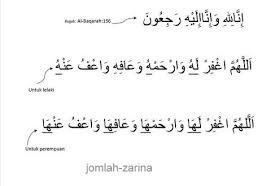 إِنَّالِلهِ وَإِنَّاإِلَيْهِ رَجِعُونَ
Rujuk: Al-Baqarah:156
اَللّٰهُمَّ اغْفِرْ لَهُ وَارْحَمْهُ وَعَافِهِ وَاعْفُ عَنْهُ
Untuk lelaki
اَللّٰهُمَّ اغْفِرْ لَهَا وَارْحَمْهَا وَعَافِهَا وَاعْفُ عَنْهَا
Untuk perempuan
jomlah-zarina